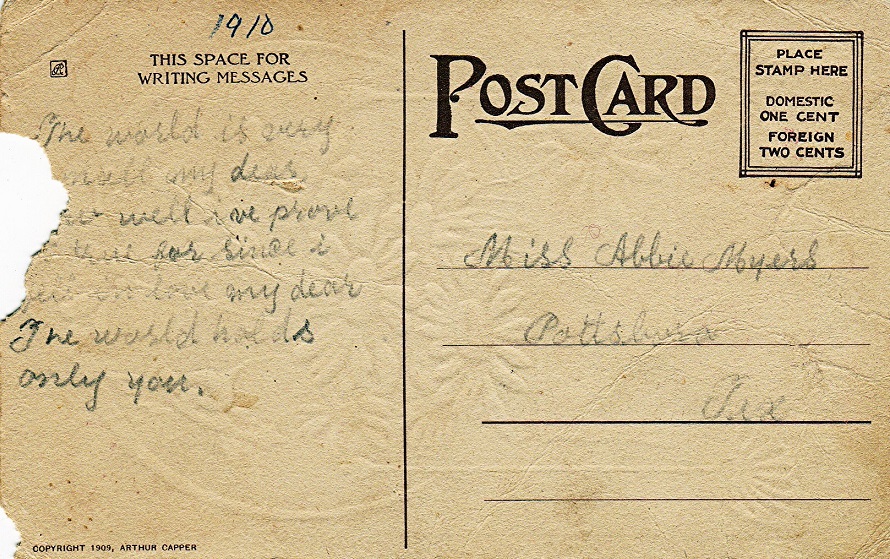 1910
THIS SPACE FOR
WRITING MESSAGES
The world is very
my dear
well ive prove
for since i
in love my dear
The world holds
only you.
COPYRIGHT 1909, ARTHUR CAPPER
POST CARD
PLACE
STAMP HERE
DOMESTIC
ONE CENT
FOREIGN
TWO CENTS
Miss Abbie Myers
Pottsburg
Tex